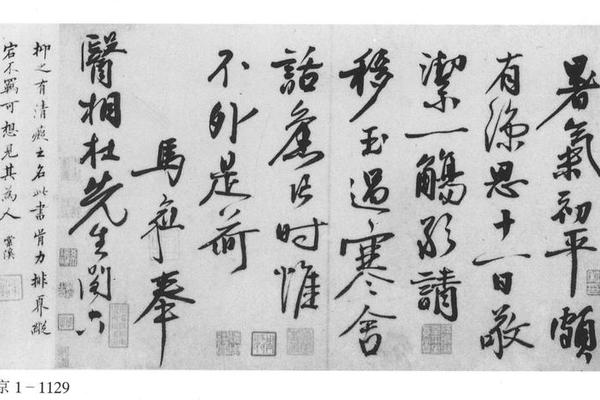 暑氣初平頗
有涼思十一日敬
潔一觴敢請
移玉過寒舍
話舊片時惟
不外是荷
馬愈奉
醫相杜先生閣下
抑之有清癡之名此書骨力排奡
宕不羈可想見其為人
京 1－1129